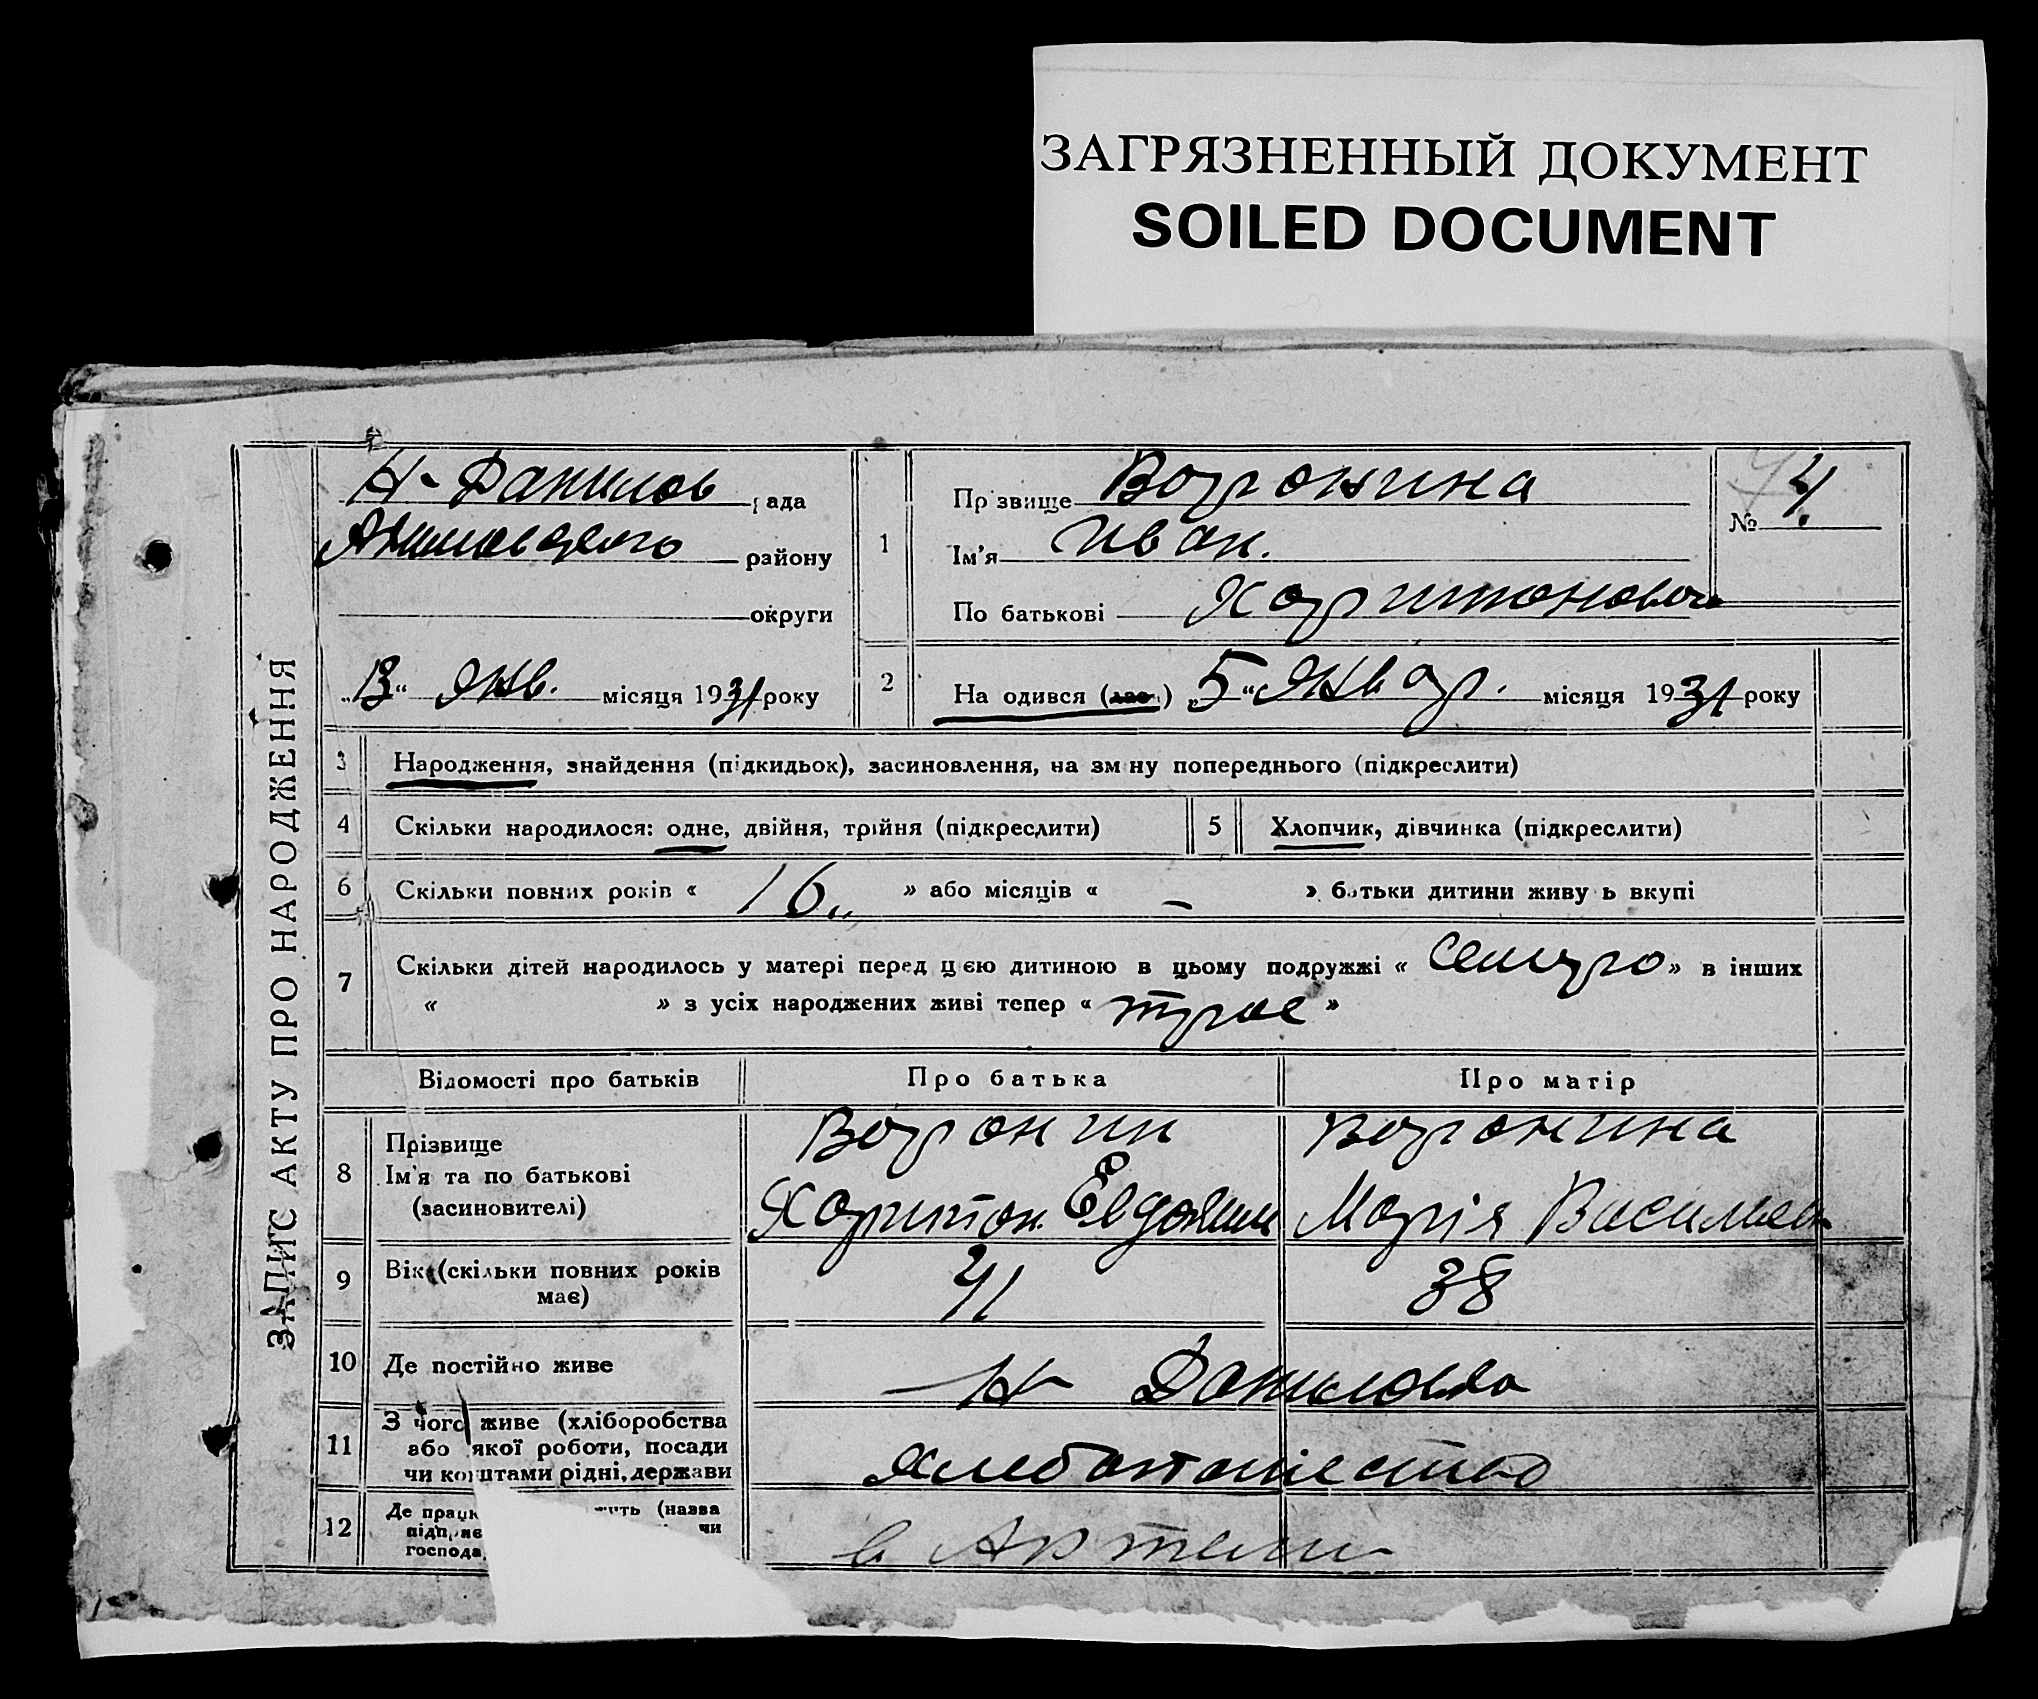 ЗАГРЯЗНЕННЫЙ ДОКУМЕНТ
SOILED DOCUMENT
ЗАПИС АКТУ ПРО НАРОДЖЕННЯ
Н-Данилов рада
району
округи
„13“ Янв. місяця 1931 року
1
Прізвище Воронина
Ім'я Иван.
По батькові Харитонович
№ 4
2
На одився ( ) „5“ Январ. місяця 1931 року
3 Народження, знайдення (підкидьок), засиновлення, на зміну попереднього (підкреслити)
4 Скільки народилося: одне, двійня, трійня (підкреслити)
5 Хлопчик, дівчинка (підкреслити)
6 Скільки повних років « 16 » або місяців « – » батьки дитини живу ь вкупі
7 Скільки дітей народилось у матері перед цією дитиною в цьому подружжі « семеро » в інших
« » з усіх народжених живі тепер « трое »
Відомості про батьків
Про батька
Про матір
8 Прізвище
Ім'я та по батькові
(засиновителі)
Воронин
Харитон Евдоким
Воронина
Марія Васильев
9 Вік (скільки повних років
має)
41
38
10 Де постійно живе
Н- Даниловка
11 З чого живе (хліборобства
або якої роботи, посади
чи коштами рідні, держави
хлебопашество
12 Де працю
(назва
підприє чи
господа
в Артели